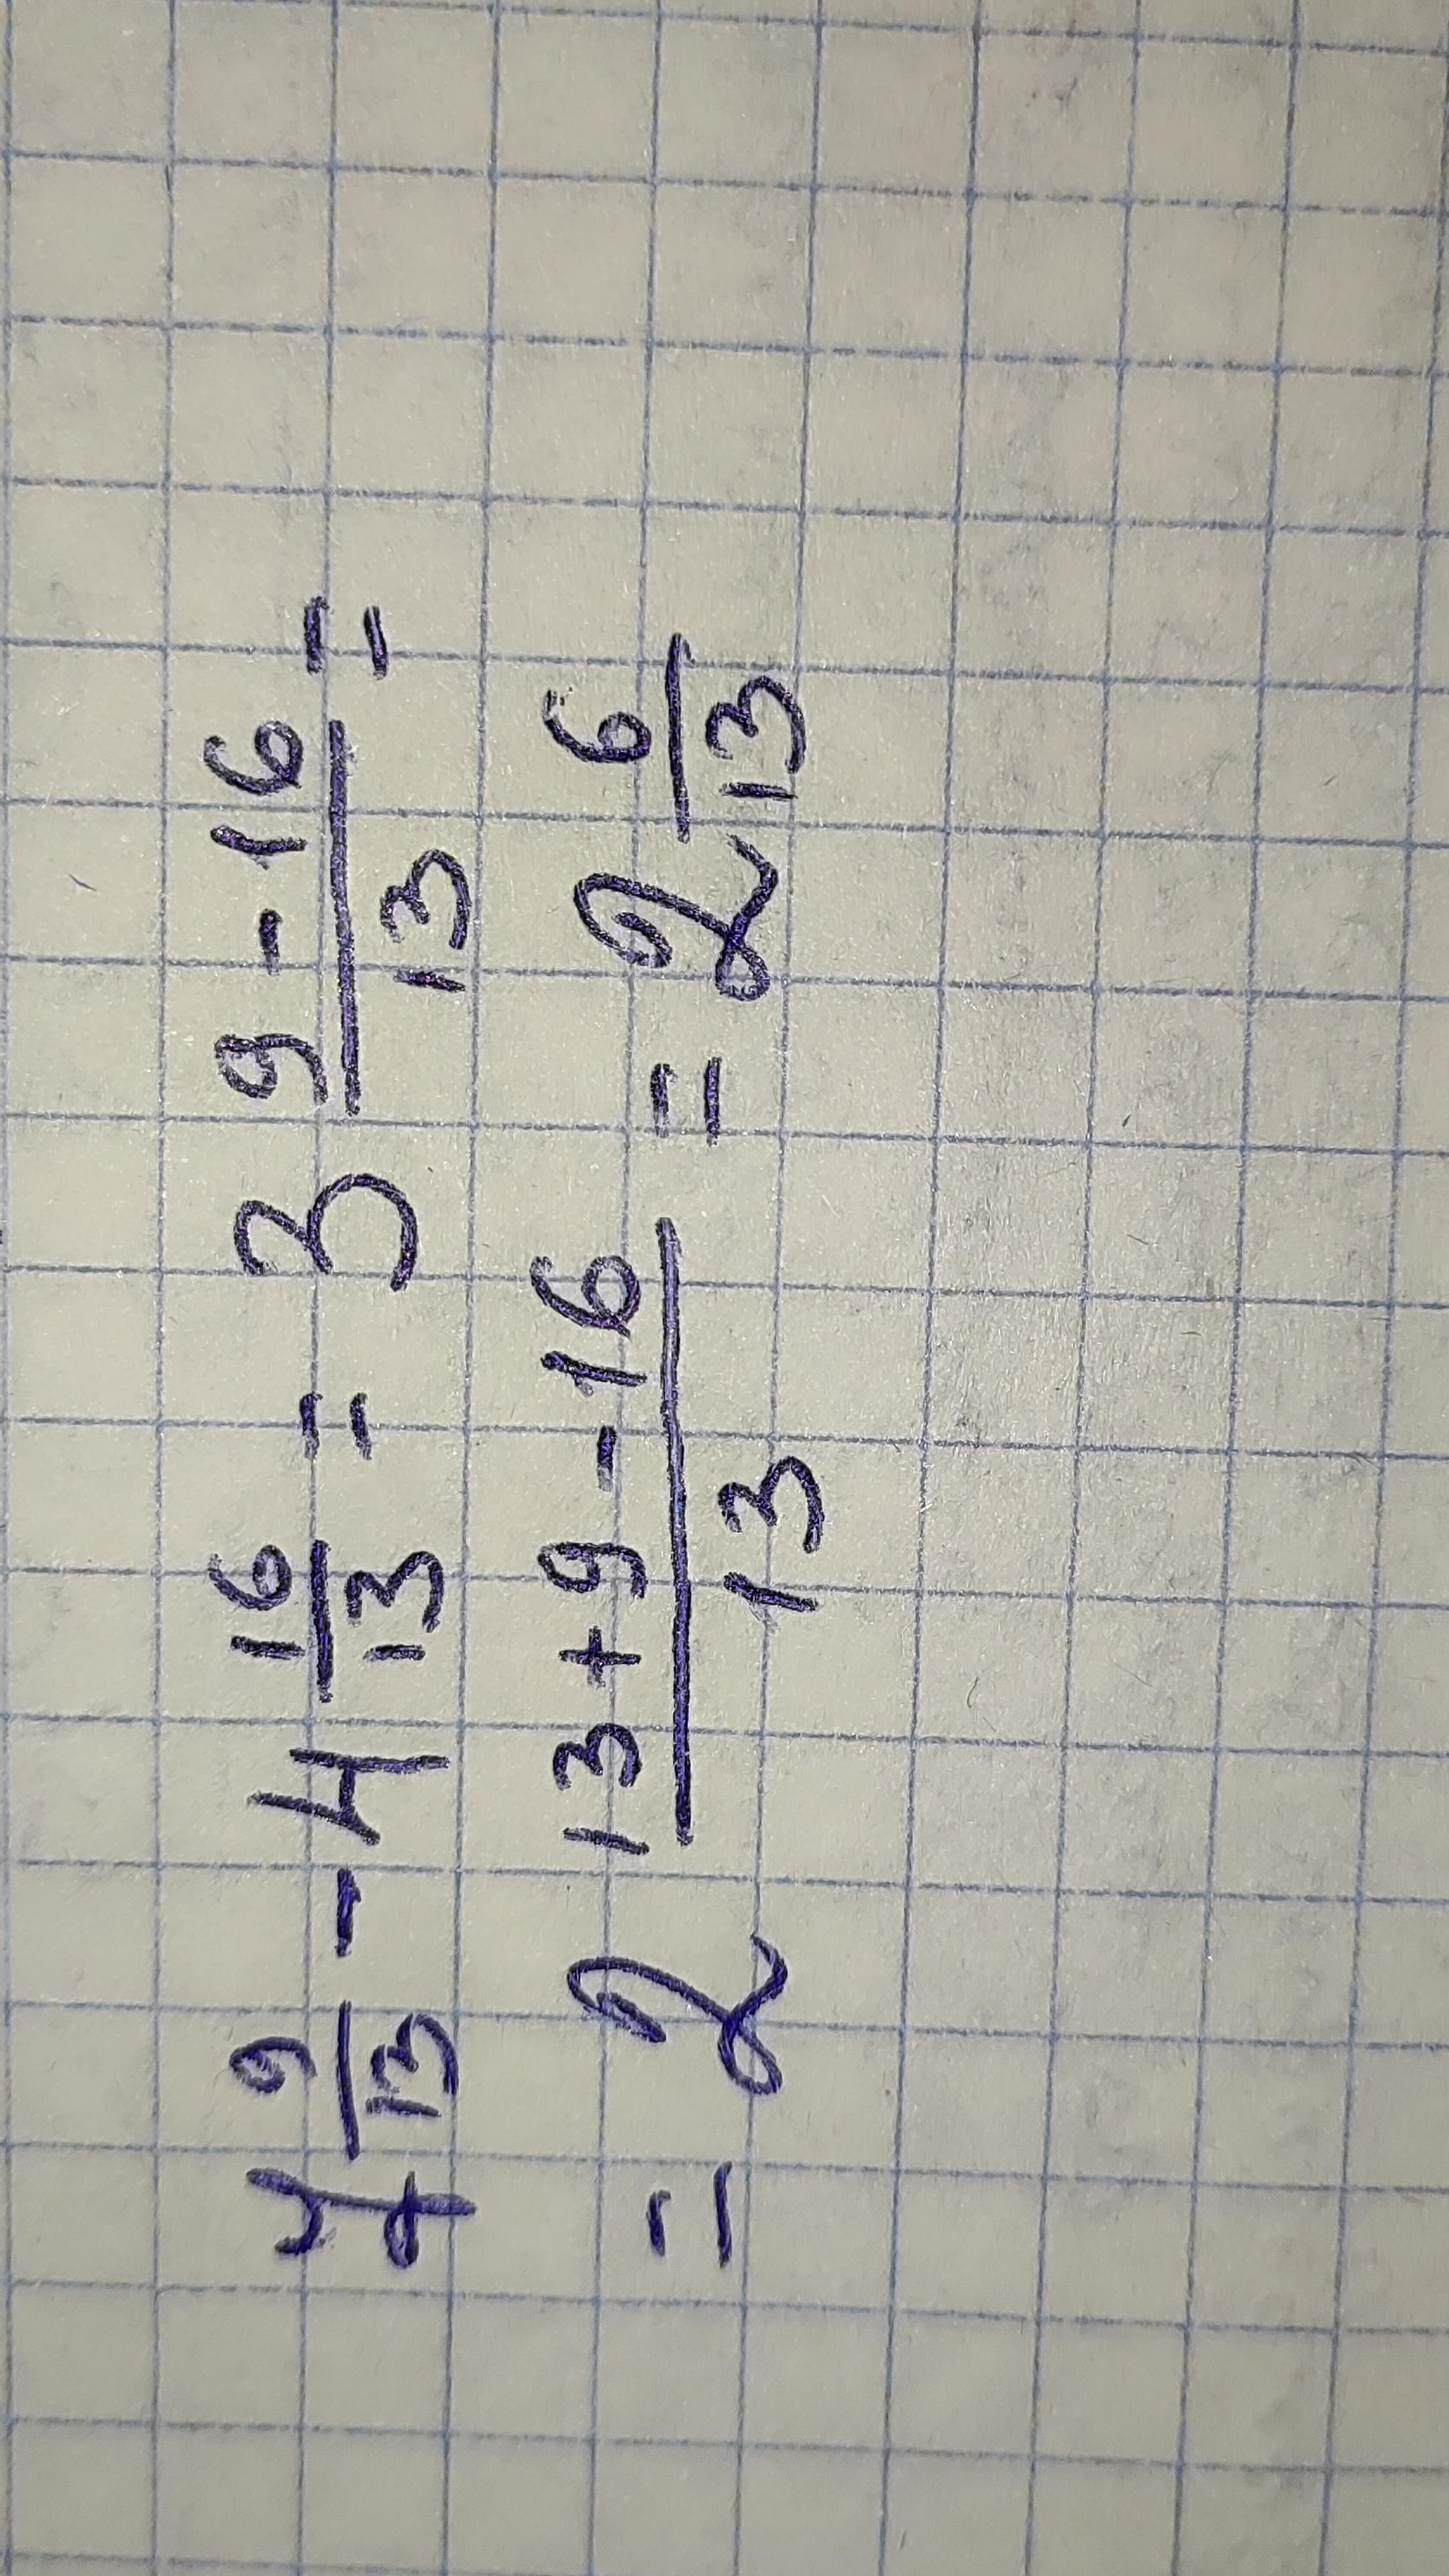 7 9/13 - 4 16/13 = 3 (9 - 16)/13 =
= 2 (13 + 9 - 16)/13 = 2 6/13